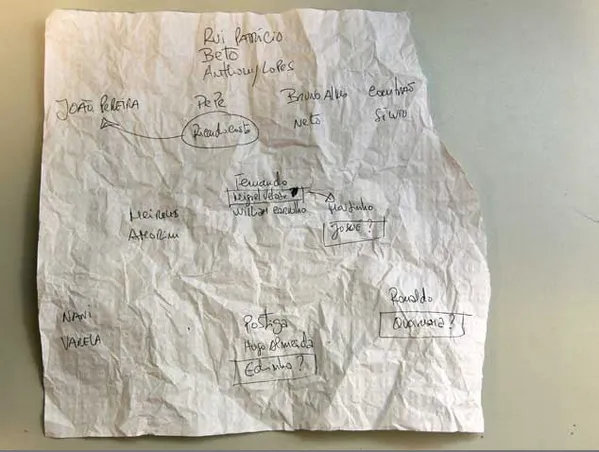 Rui Patricio
Beto
Anthony Lopes
João Pereira
Pepe
Bruno Alves
Coentrão
Ricardo Costa
Neto
Silvio
Fernando
Miguel Veloso
William Carvalho
Meireles
Amorim
Martinho
Josué ?
Nani
Varela
Postiga
Hugo Almeida
Edinho ?
Ronaldo
Quaresma ?